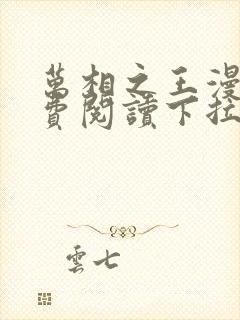 萬相之王漫
費閱讀下拉
雲七